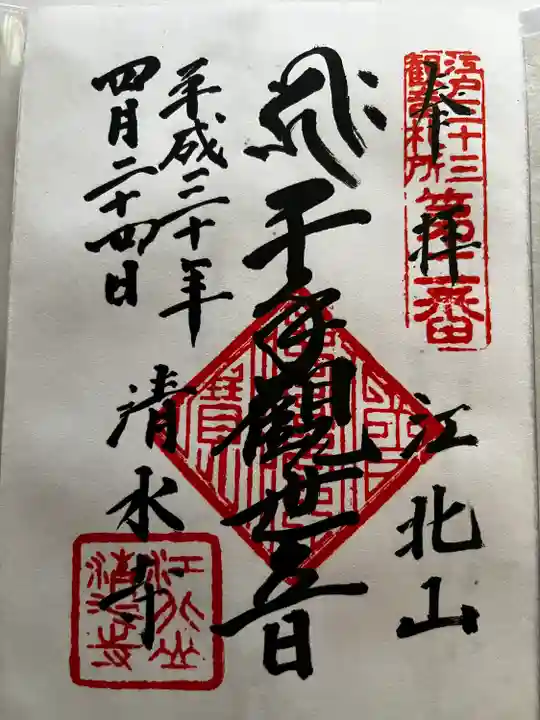 奉拝
江戸三十三
観音札所
第二番
江北山
千手観世音
清水寺
平成三十年
四月二十四日
江北山
清水寺